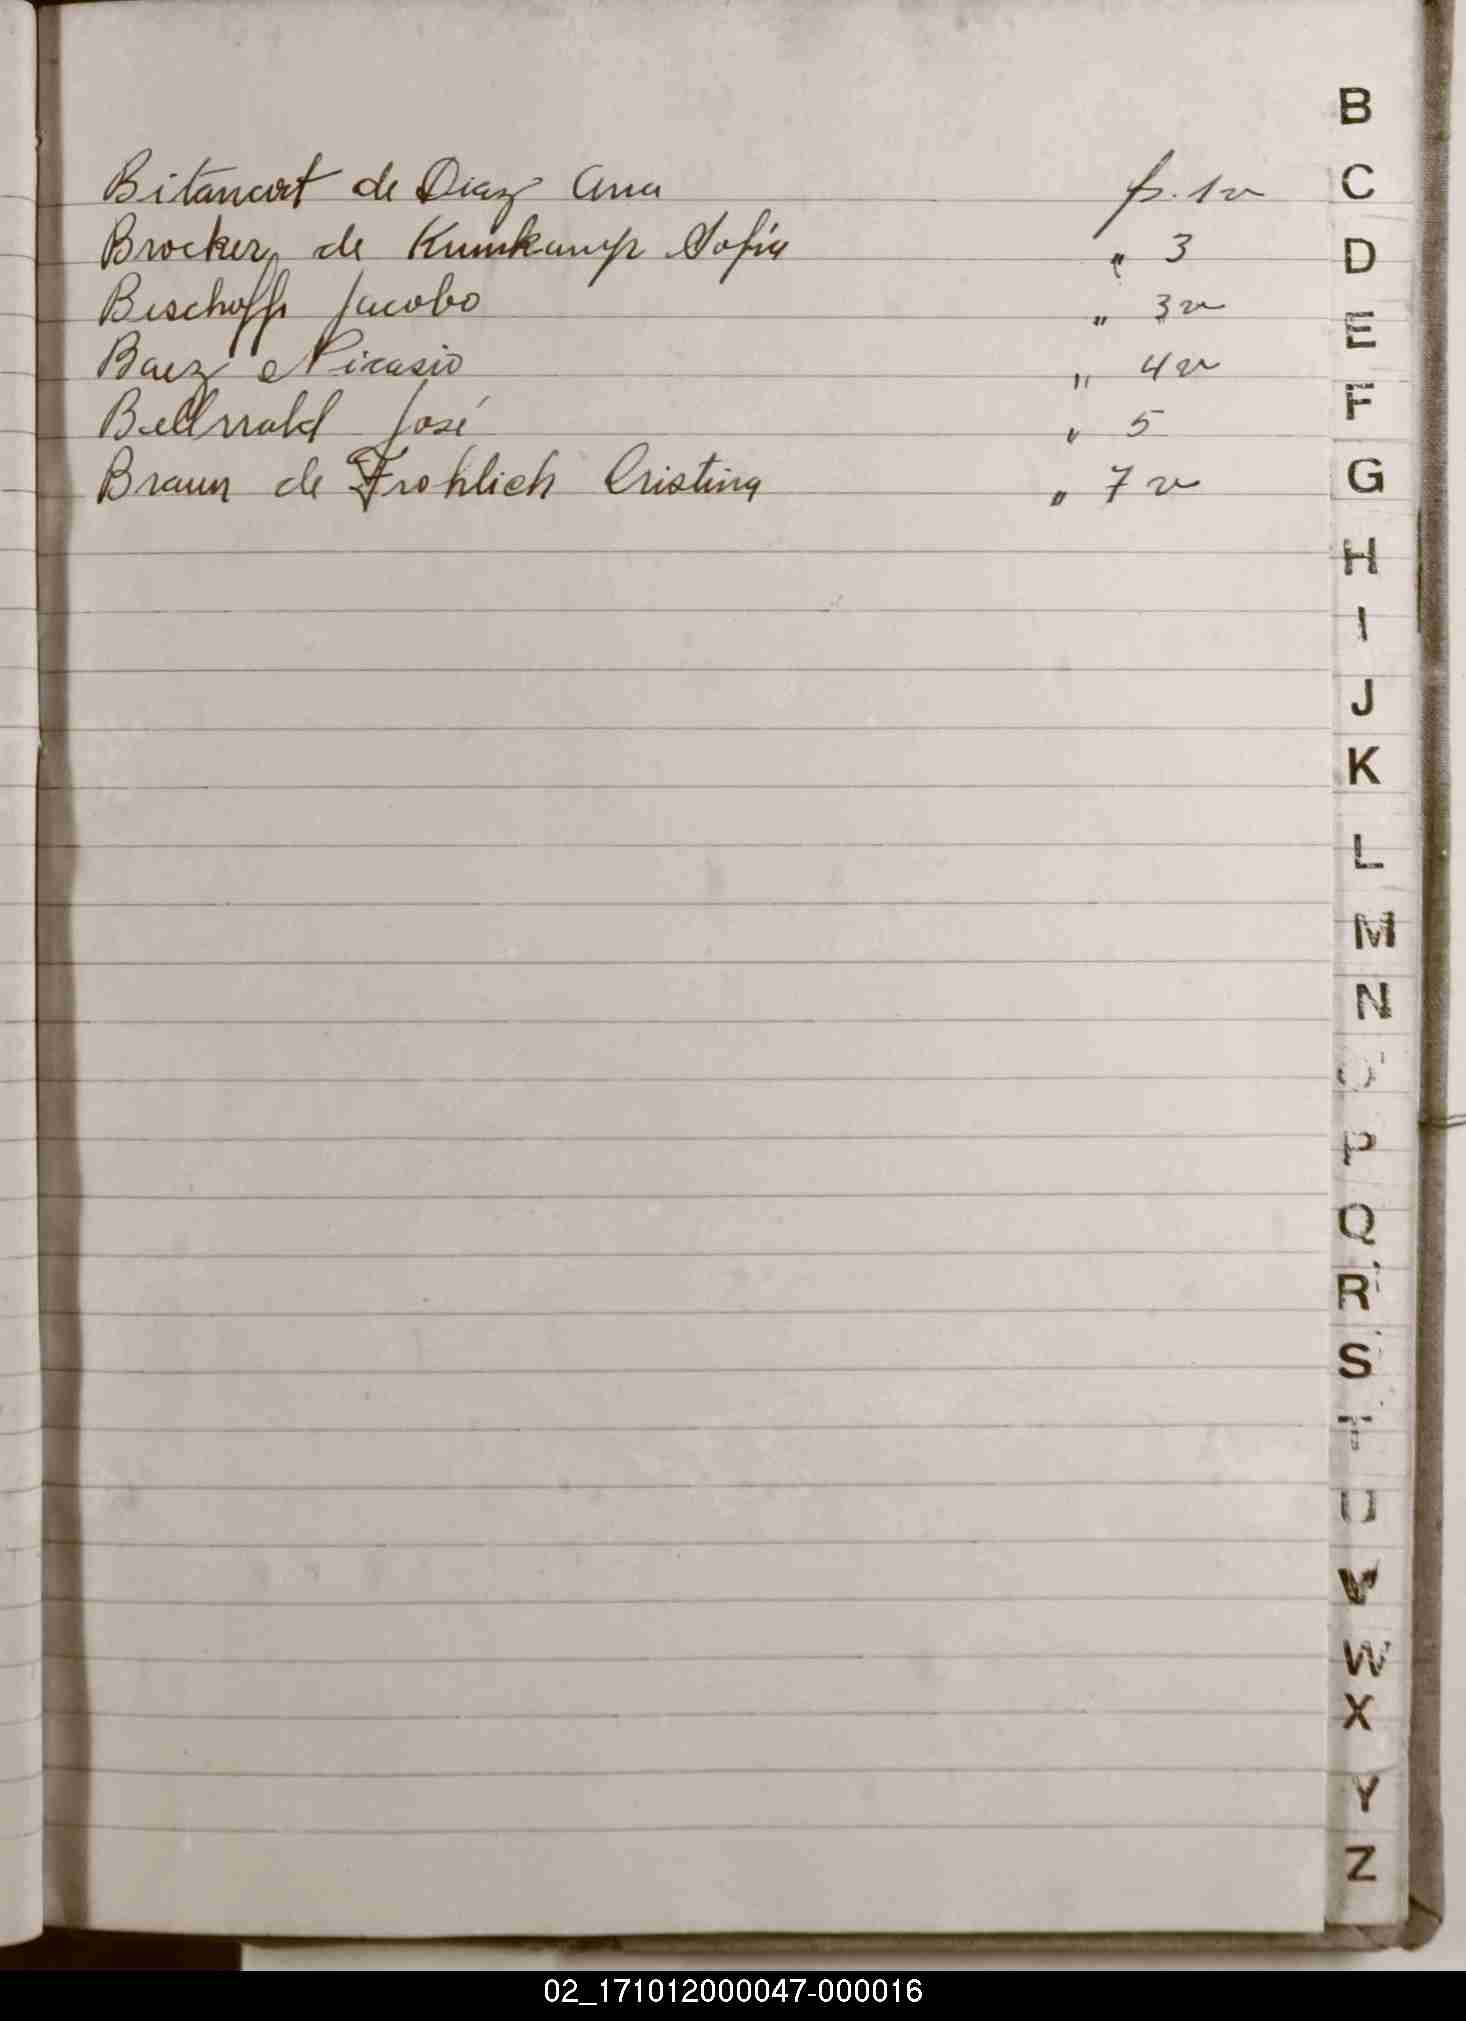 B
Bitancort de Diaz Ana f. 1v
C
Brocker de Kumkamp Sofía " 3
D
Bischoff Jacobo " 3v
E
Baez Nicasio " 4v
F
José " 5
Braun de Frohlich Cristina " 7v
G
H
I
J
K
L
M
N
O
P
Q
R
S
T
U
V
W
X
Y
Z
02_171012000047-000016